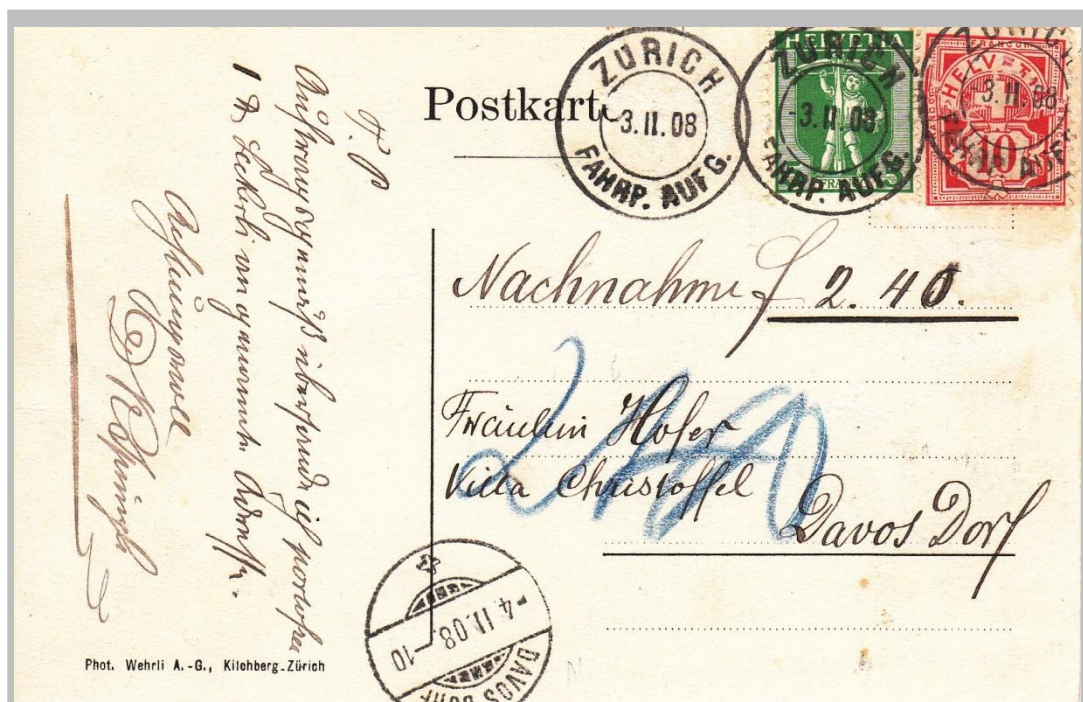 Postkarte
ZÜRICH
-3.II.08
FAHRP. AUFG.
HELVETIA
ZÜRICH
-3.II.08
FAHRP. AUFG.
5
FRANCO
HELVETIA
10
ZÜRICH
-3.II.08
FAHRP. AUFG.
Nachnahme f 2.40.
240
Fräulein Hofer
Villa Christoffel
Davos Dorf
4.II.08.-10
DAVOS DORF
T. P.
Auftragsgemäss übersende ich portofrei
1 D. Leckerli an genannte Adresse.
Achtungsvoll
Phot. Wehrli A.-G., Kilchberg-Zürich